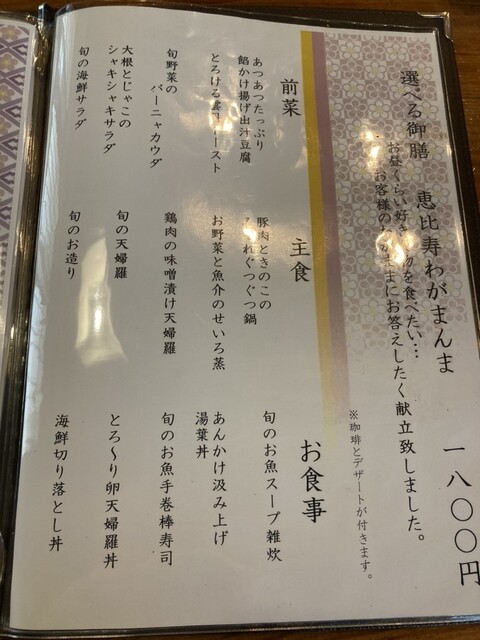 選べる御膳 恵比寿わがまんま 一八〇〇円
お昼くらい好き 物を食べたい…
お客様の ままにお答えしたく献立致しました。
※珈琲とデザートが付きます。
前菜
あつあつたっぷり
餡かけ揚げ出汁豆腐
とろける雲 ースト
旬野菜の
バーニャカウダ
大根とじゃこの
シャキシャキサラダ
旬の海鮮サラダ
主食
豚肉ときのこの
れぐつぐつ鍋
お野菜と魚介のせいろ蒸
鶏肉の味噌漬け天婦羅
旬の天婦羅
旬のお造り
お食事
旬のお魚スープ雑炊
あんかけ汲み上げ
湯葉丼
旬のお魚手巻棒寿司
とろ〜り卵天婦羅丼
海鮮切り落とし丼